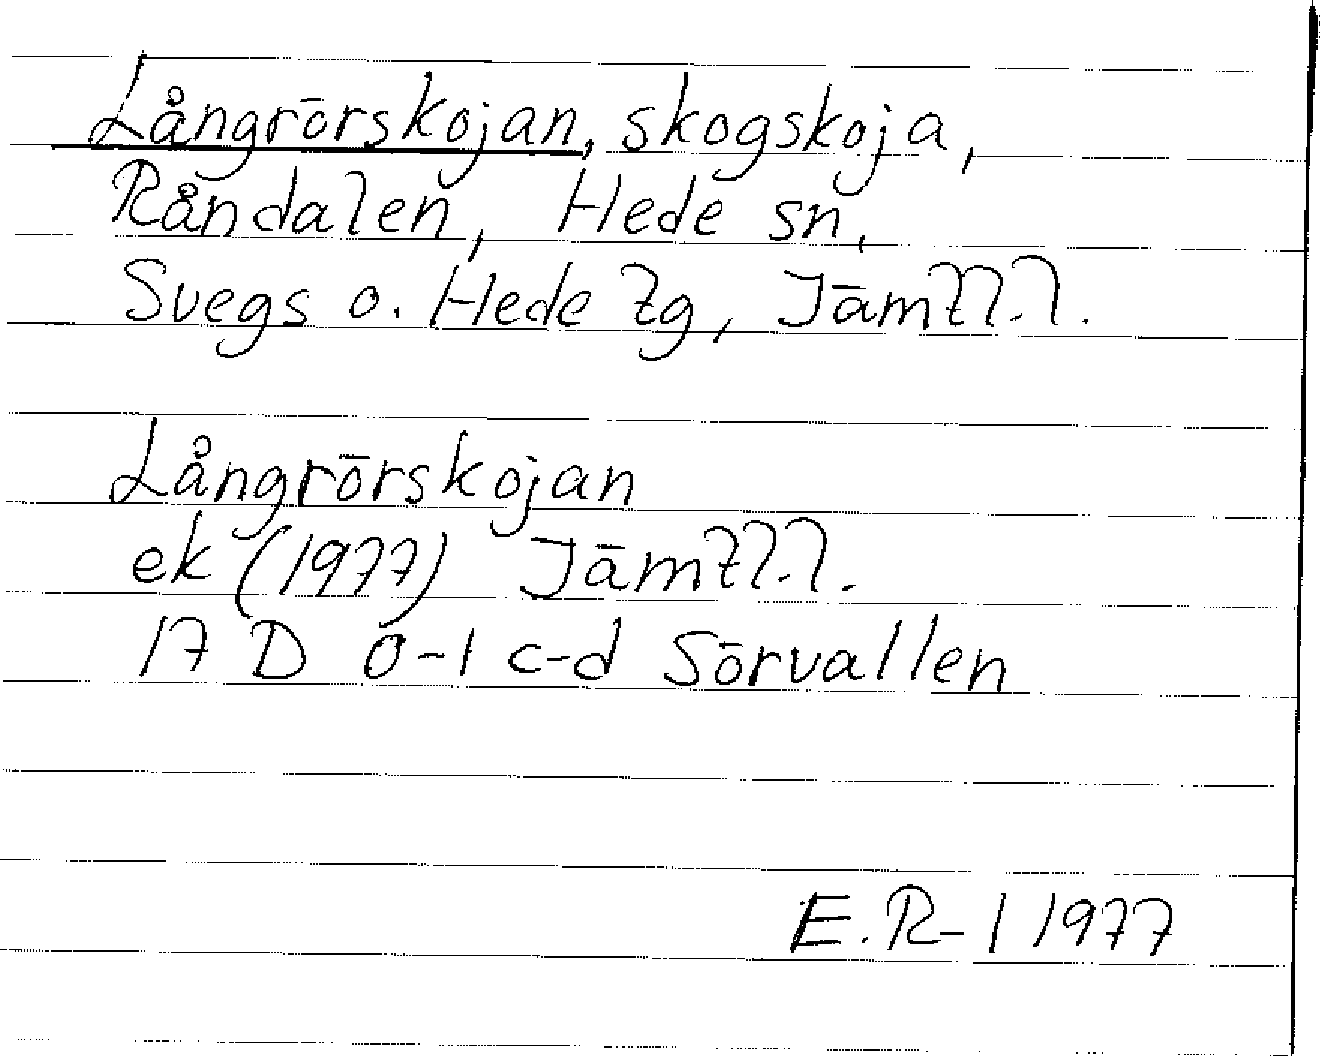 Långrörskojan, skogskoja,
Råndalen, Hede sn,
Svegs o. Hede tg, Jämtl.l.
Långrörskojan
ek (1977) Jämtl.l.
17 D 0-1 c-d Sörvallen
E.R-l 1977